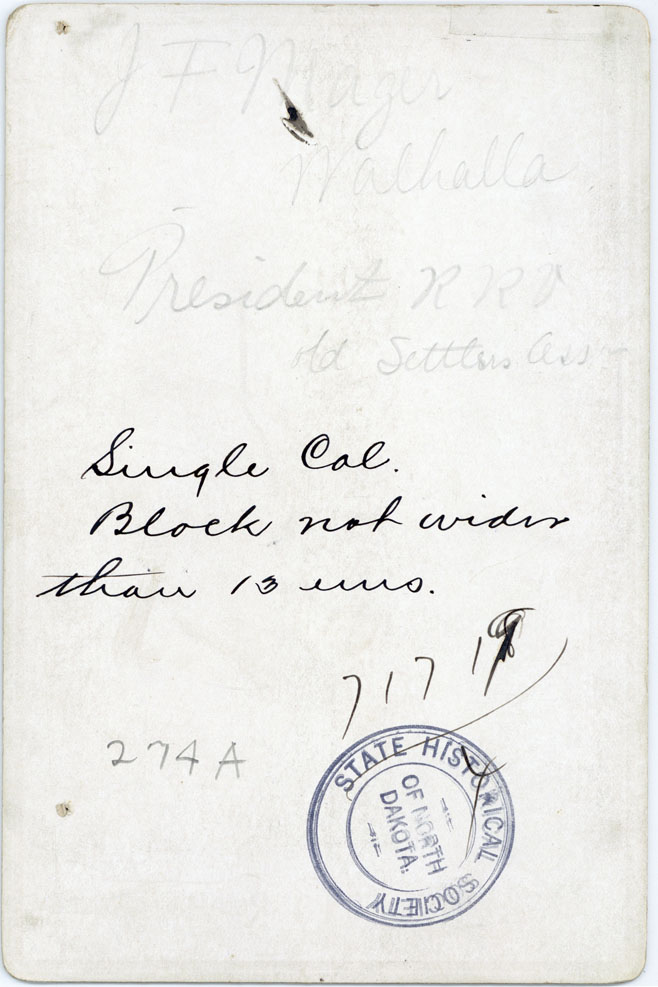 J F Mager
Walhalla
President R R V
Old Settlers Ass
Single Col.
Block not wider
than 13 ems.
717
274 A
STATE HISTORICAL SOCIETY
OF NORTH
DAKOTA.